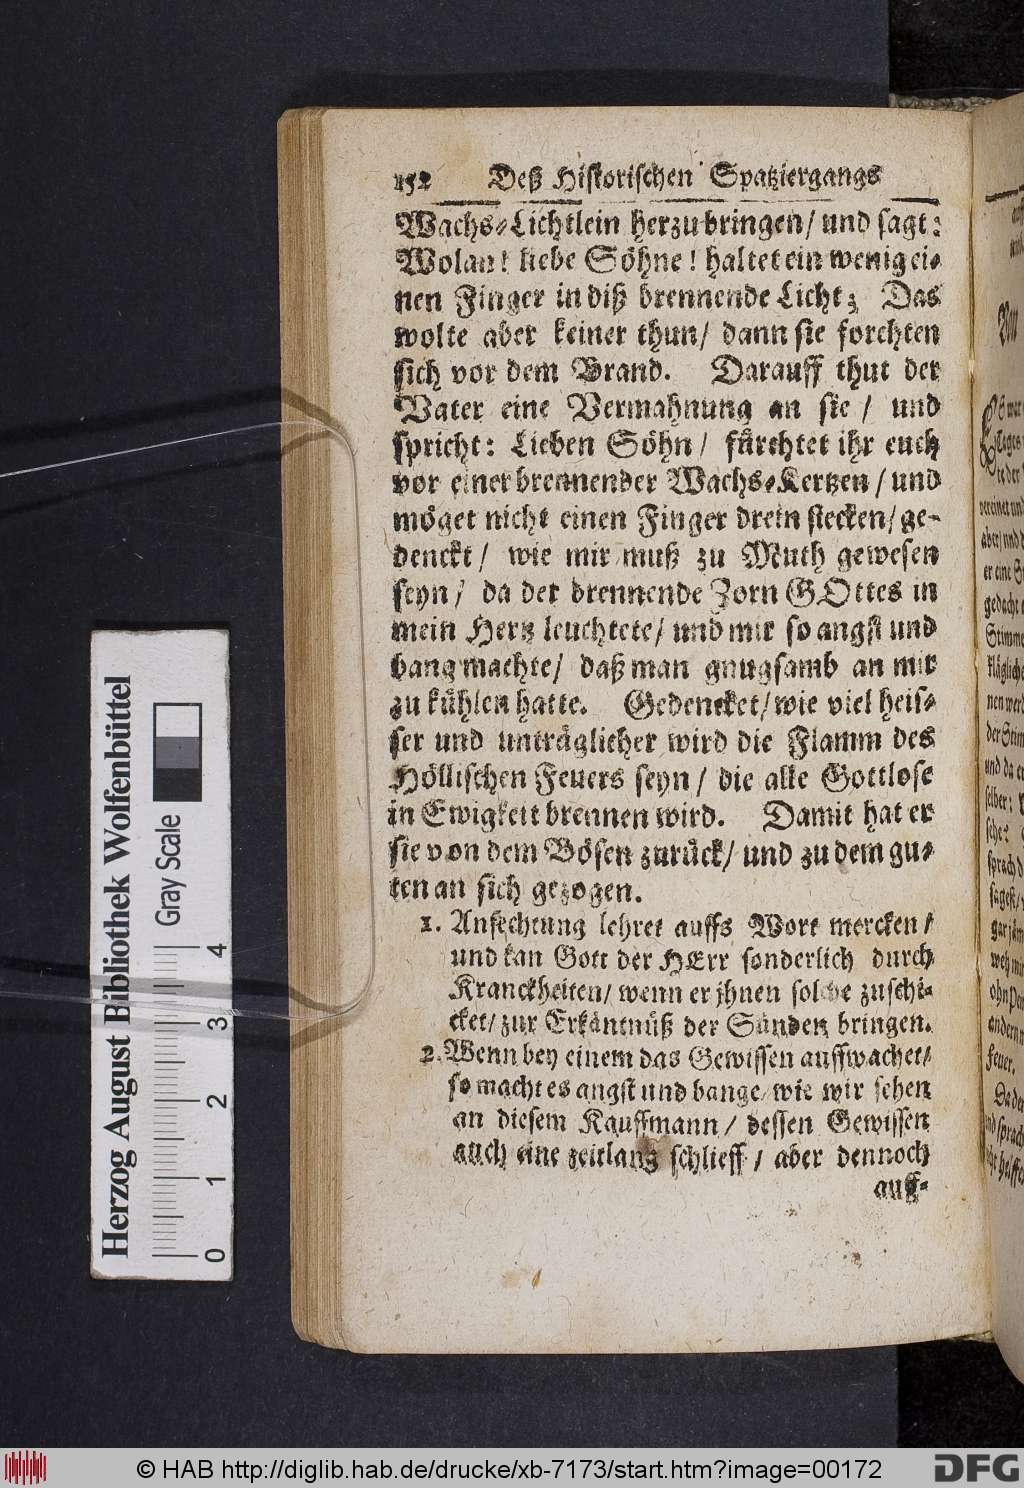 152 Deß Historischen Spatziergangs
Wachs-Lichtlein herzubringen/ und sagt:
Wolan! liebe Söhne! haltet ein wenig ei-
nen Finger in diß brennende Licht; Das
wolte aber keiner thun/ dann sie forchten
sich vor dem Brand. Darauff thut der
Vater eine Vermahnung an sie/ und
spricht: Lieben Söhn/ fürchtet ihr euch
vor einer brennender Wachs-Kertzen/ und
möget nicht einen Finger drein stecken/ ge-
denckt/ wie mir muß zu Muth gewesen
seyn/ da der brennende Zorn GOttes in
mein Hertz leuchtete/ und mir so angst und
bang machte/ daß man gnugsamb an mir
zu kühlen hatte. Gedencket/ wie viel heis-
ser und unträglicher wird die Flamm des
Höllischen Feuers seyn/ die alle Gottlose
in Ewigkeit brennen wird. Damit hat er
sie von dem Bösen zurück/ und zu dem gu-
ten an sich gezogen.
1. Anfechtung lehret auffs Wort mercken/
und kan Gott der HErr sonderlich durch
Kranckheiten/ wenn er jhnen solche zuschi-
cket/ zur Erkäntnüß der Sünden bringen.
2. Wenn bey einem das Gewissen auffwachet/
so macht es angst und bange/ wie wir sehen
an diesem Kauffmann/ dessen Gewissen
auch eine zeitlang schlieff/ aber dennoch
auff-
Herzog August Bibliothek Wolfenbüttel
Gray Scale
0 1 2 3 4
© HAB http://diglib.hab.de/drucke/xb-7173/start.htm?image=00172
DFG